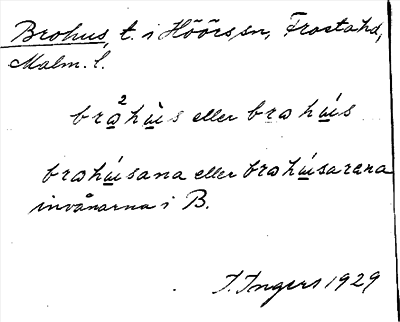 Brohus, t. i Höörs sn, Frosta hd,
Malm. l.
bra²hùs eller brahús
brahúsana eller brahúsarana
invånarna i B.
I. Ingers 1929